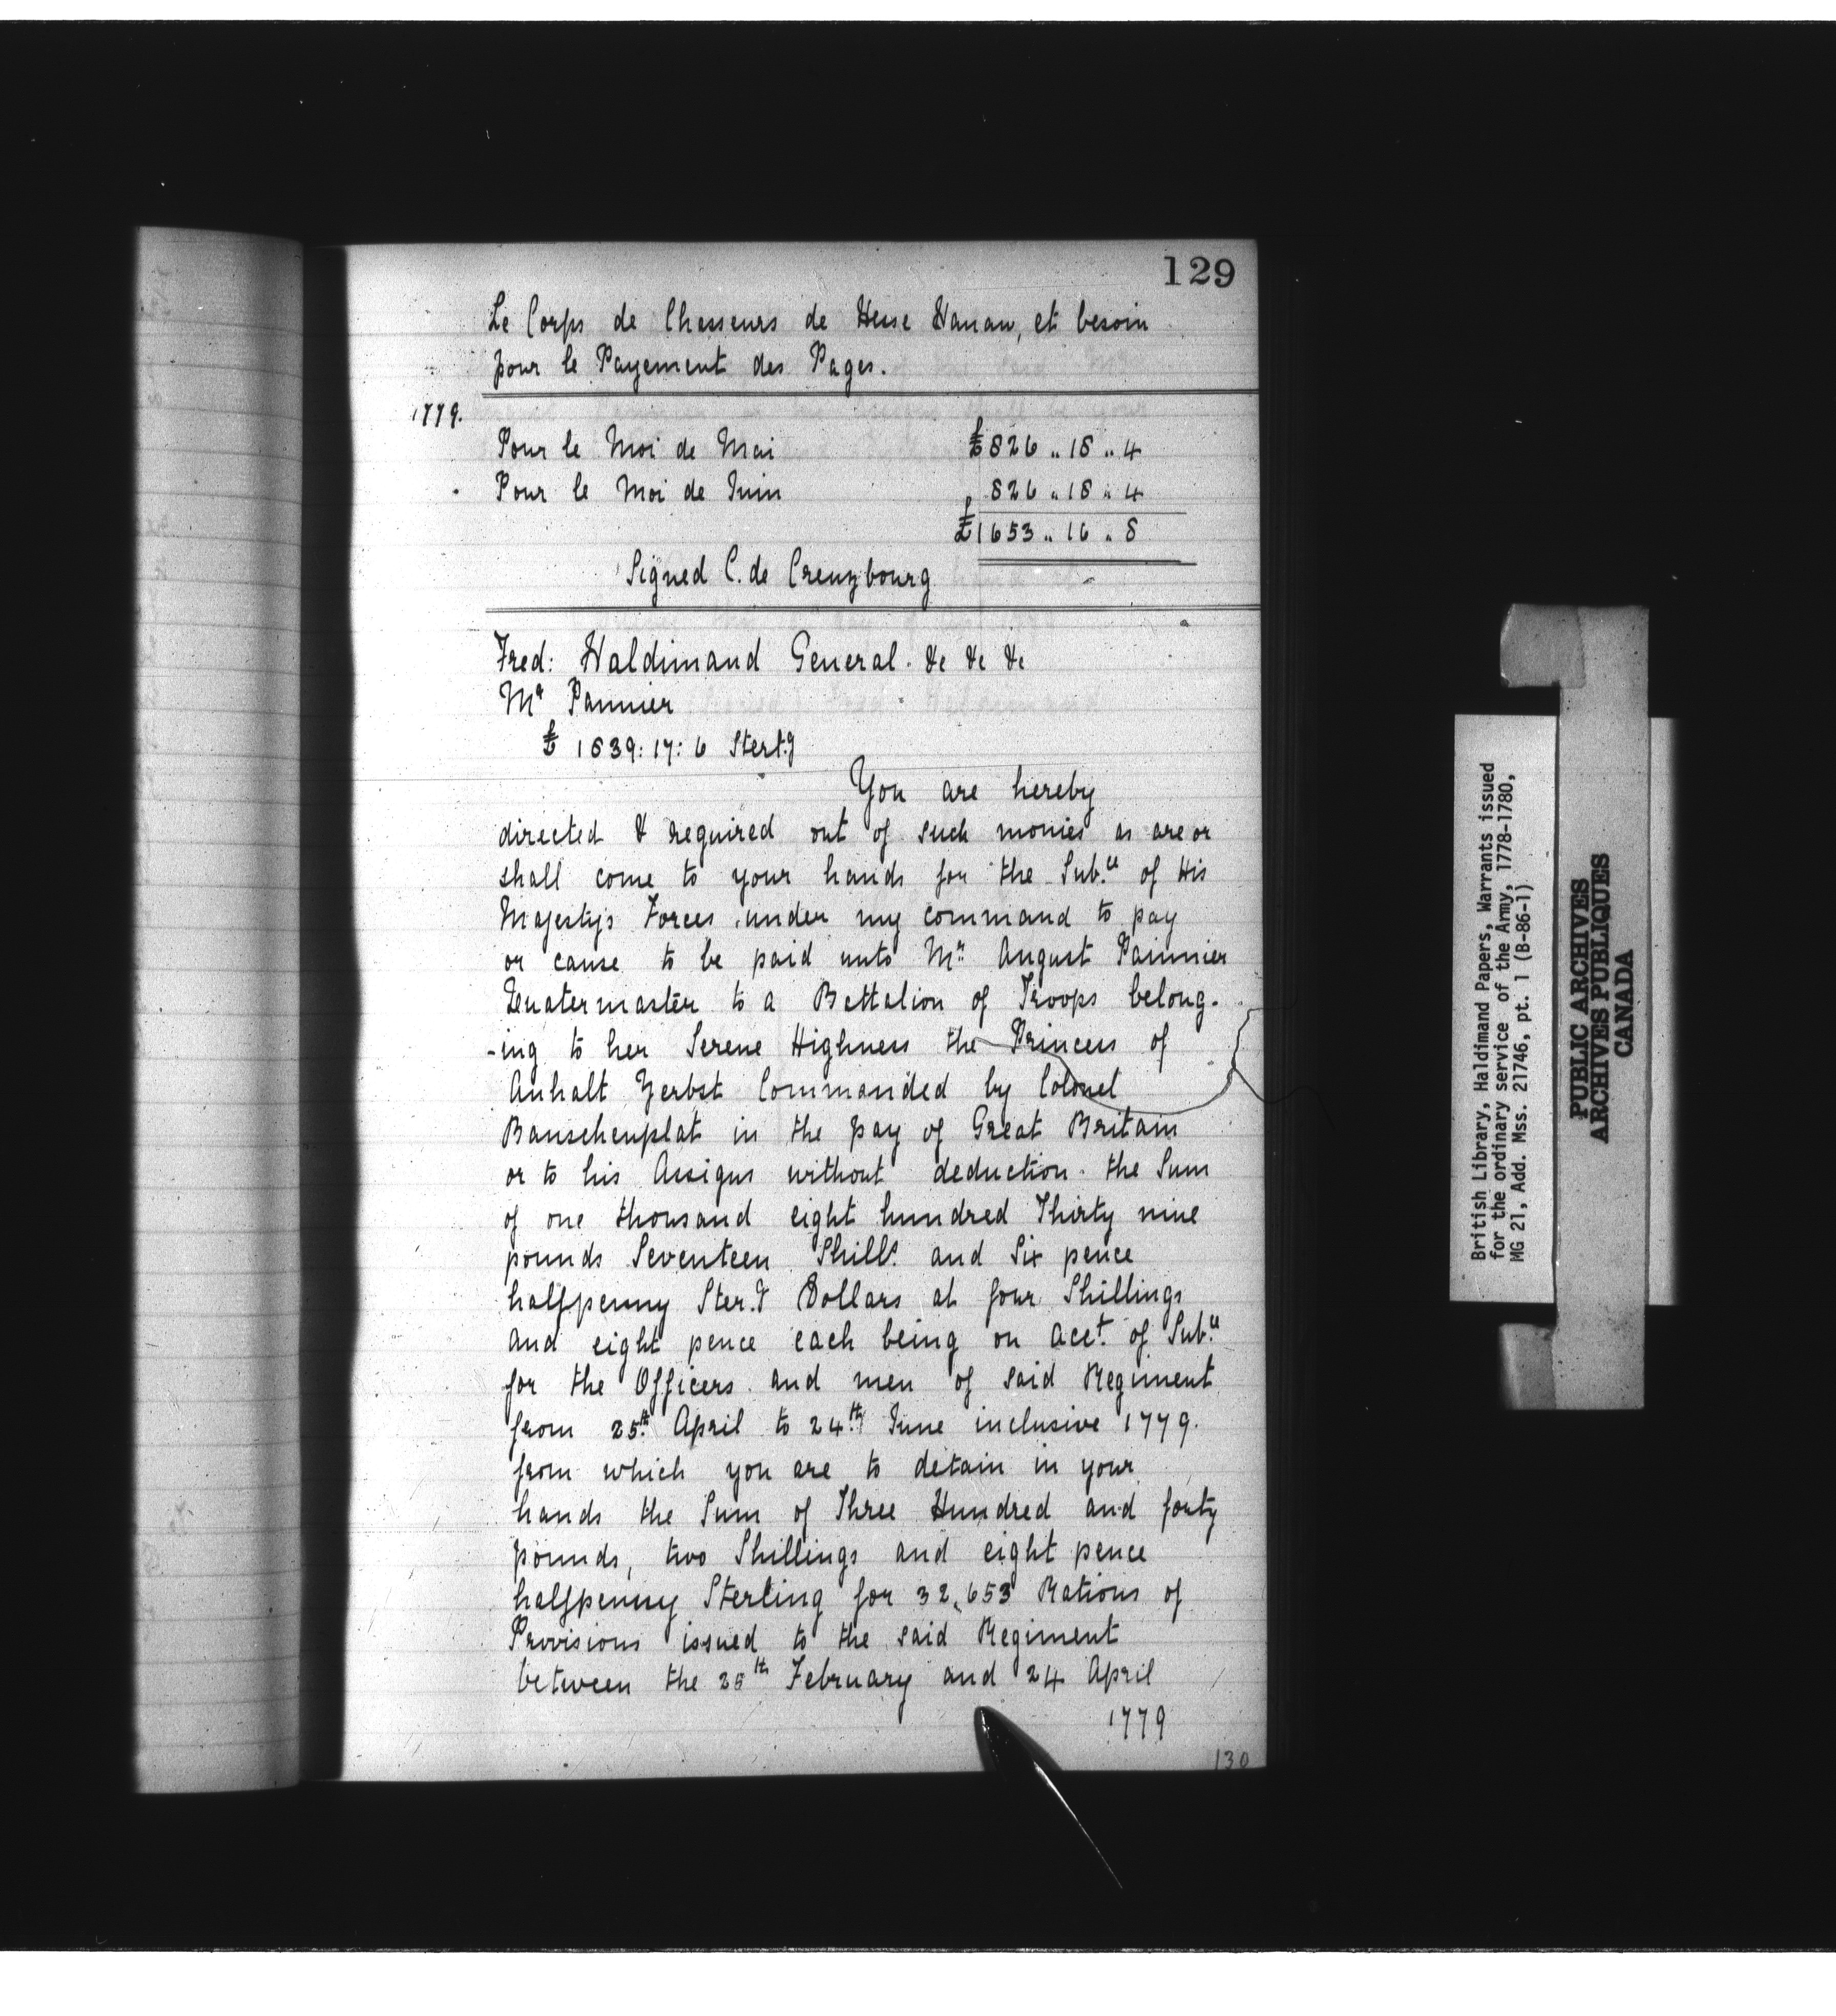 129
Le Corps de Chasseurs de Hesse Hanau, et besoin
pour le Payement des Pages.
1779.
Pour le Moi de Mai £826 „ 18 „ 4
Pour le Moi de Juin 826 „ 18 „ 4
£1653 „ 16 „ 8
Signed C. de Creuzbourg
Fred: Haldimand General &c &c &c
Mr Pannier
£ 1839: 17: 6 Sterl.g
You are hereby
directed & required out of such monies as are or
shall come to your hands for the Sub.ce of His
Majesty's Forces under my command to pay
or cause to be paid unto Mr. August Pannier
Quatermaster to a Battalion of Troops belong-
-ing to her Serene Highness the Princess of
Anhalt Zerbst Commanded by Colonel
Bauschenplat in the pay of Great Britain
or to his Assigns without deduction the Sum
of one thousand eight hundred Thirty nine
pounds Seventeen Shills. and Six pence
halfpenny Ster.g Dollars at four Shillings
and eight pence each being on acct. of Sub.ce
for the Officers and men of said Regiment
from 25th. April to 24th. June inclusive 1779.
from which you are to detain in your
hands the Sum of Three Hundred and forty
pounds, two Shillings and eight pence
halfpenny Sterling for 32,653 Rations of
Provisions issued to the said Regiment
between the 25th February and 24 April
1779
130
British Library, Haldimand Papers, Warrants issued
for the ordinary service of the Army, 1778-1780,
MG 21, Add. Mss. 21746, pt. 1 (B-86-1)
PUBLIC ARCHIVES
ARCHIVES PUBLIQUES
CANADA